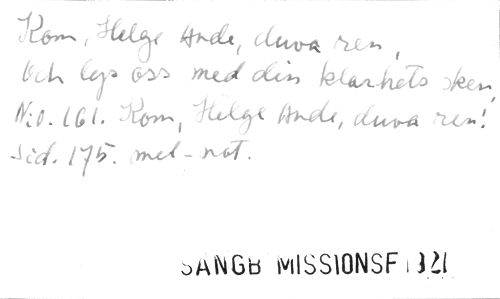 Kom, Helge Ande, duva ren,
Och lys oss med din klarhets sken,
N:o. 161. Kom, Helge Ande, duva ren!
Sid. 175. mel-not.
SANGB MISSIONSF 1921